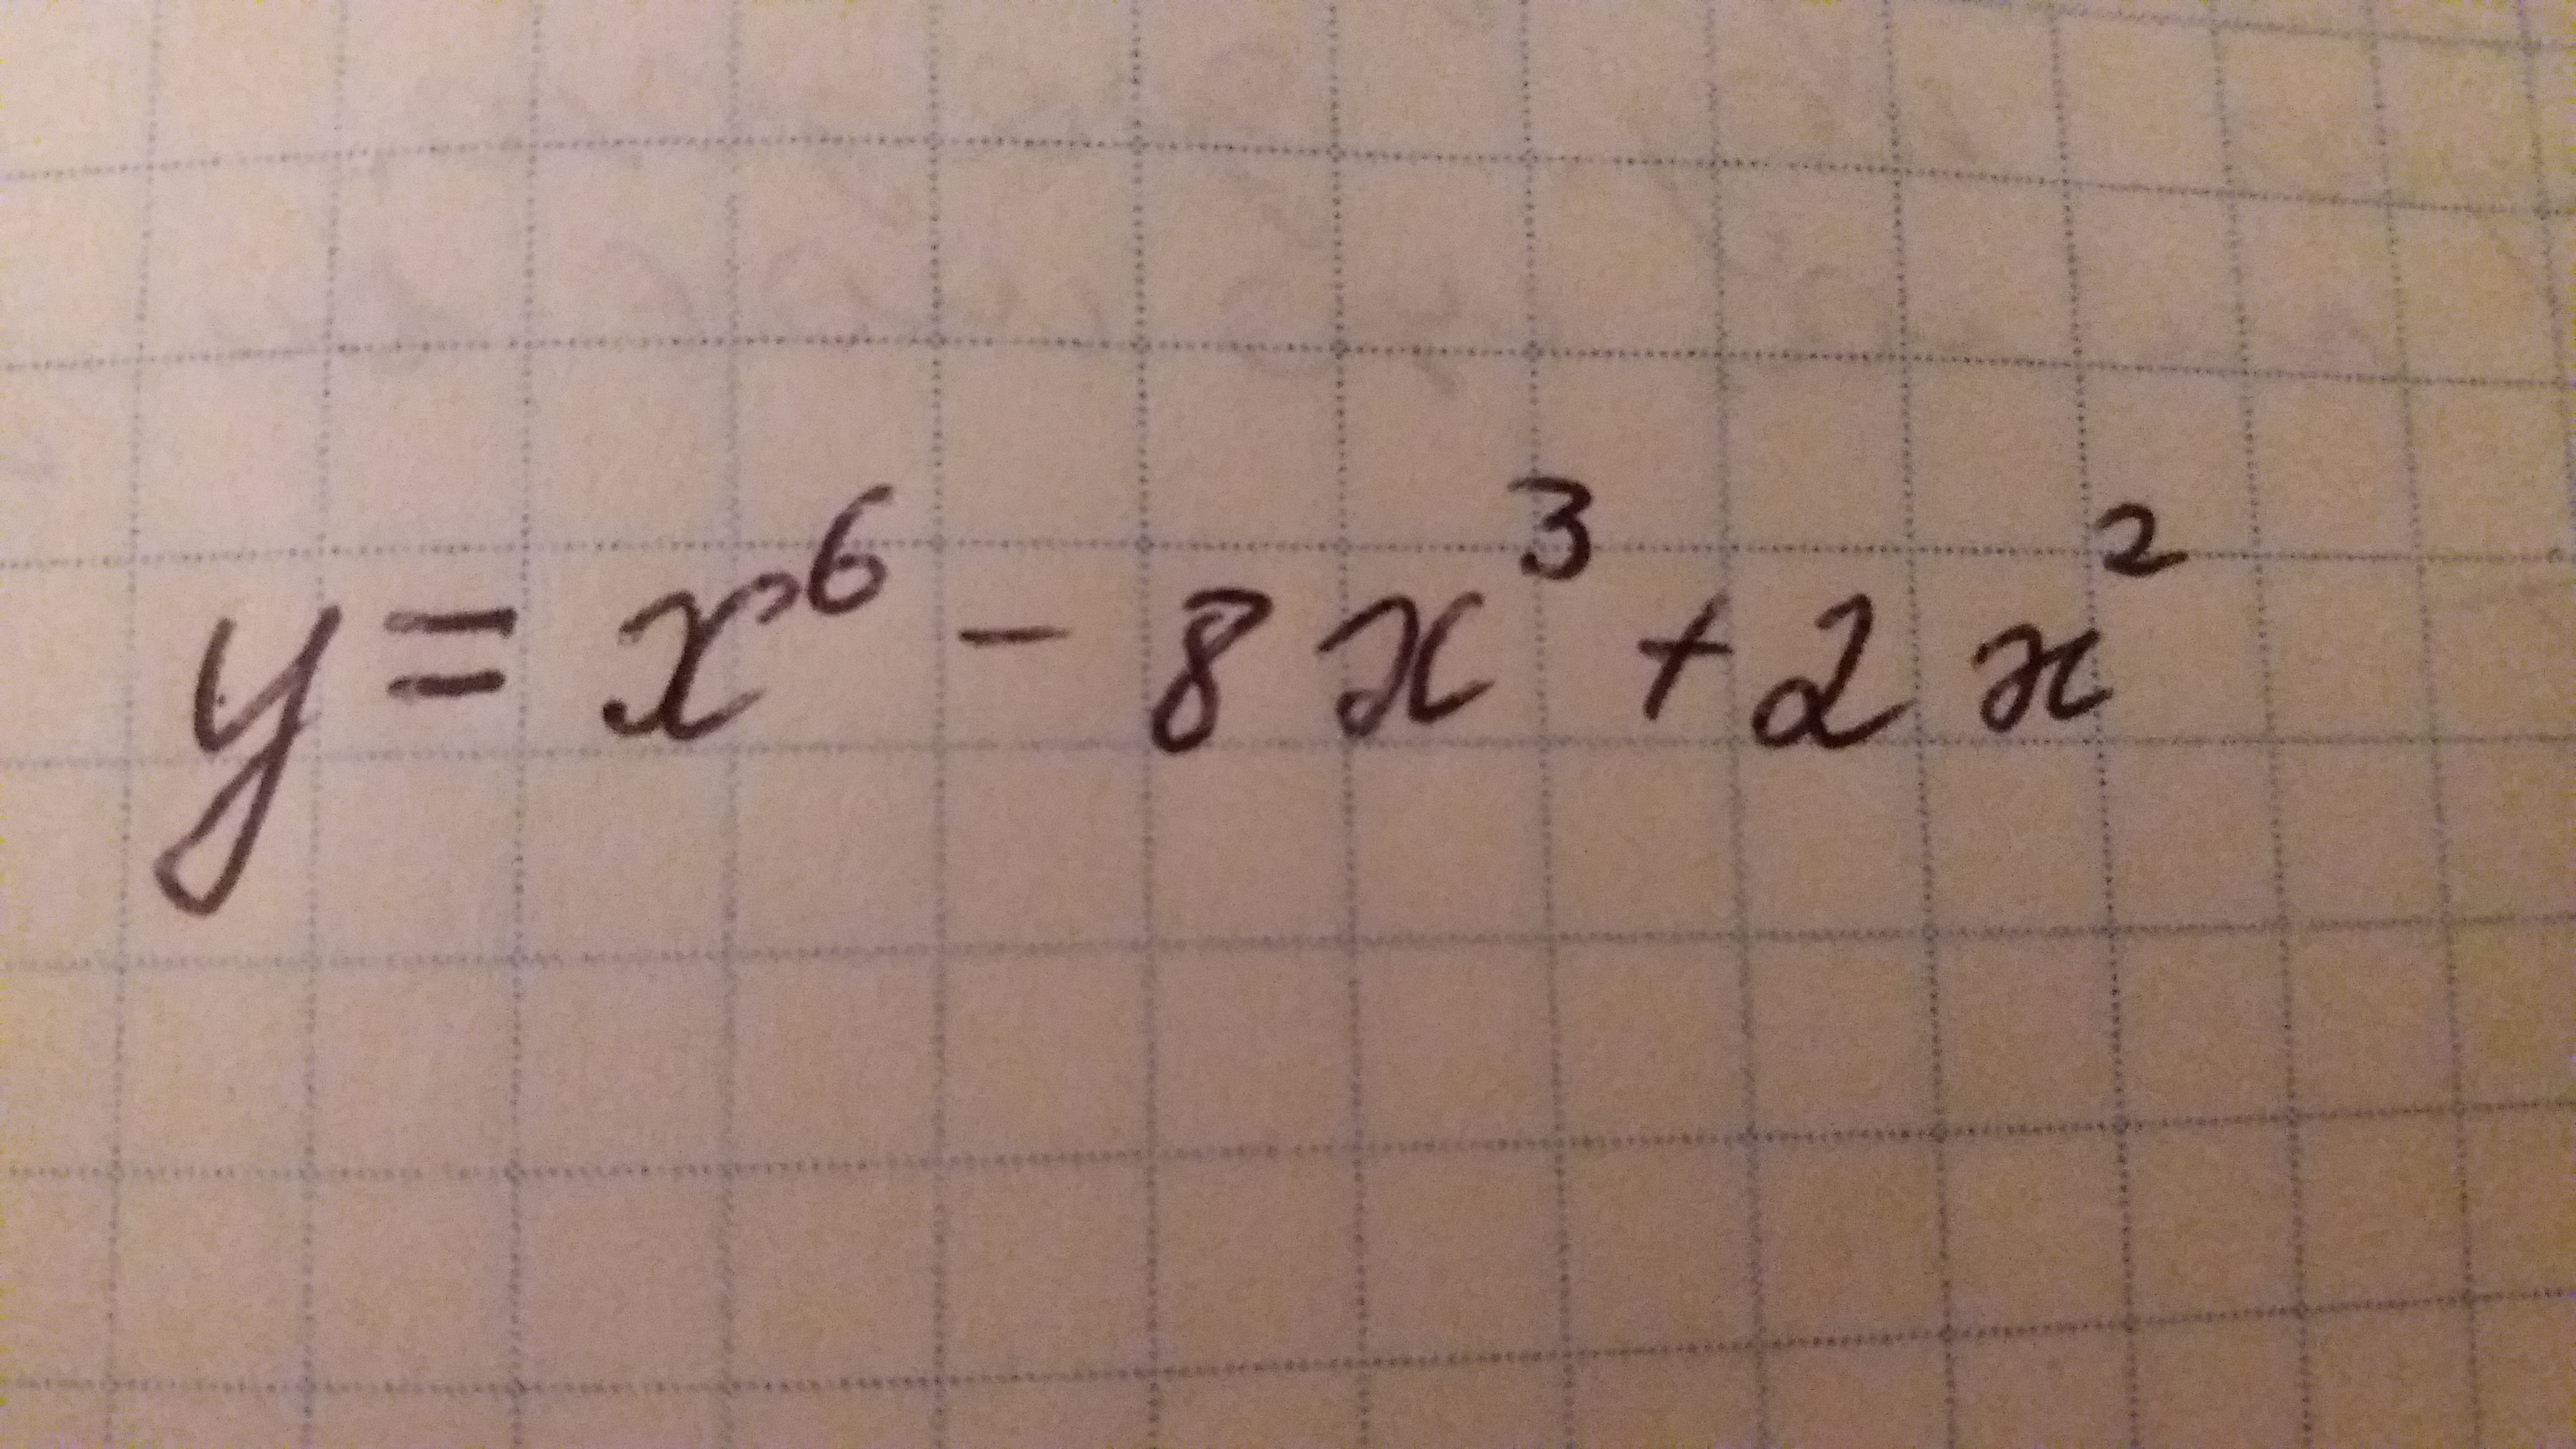 y = x⁶ - 8x³ + 2x²